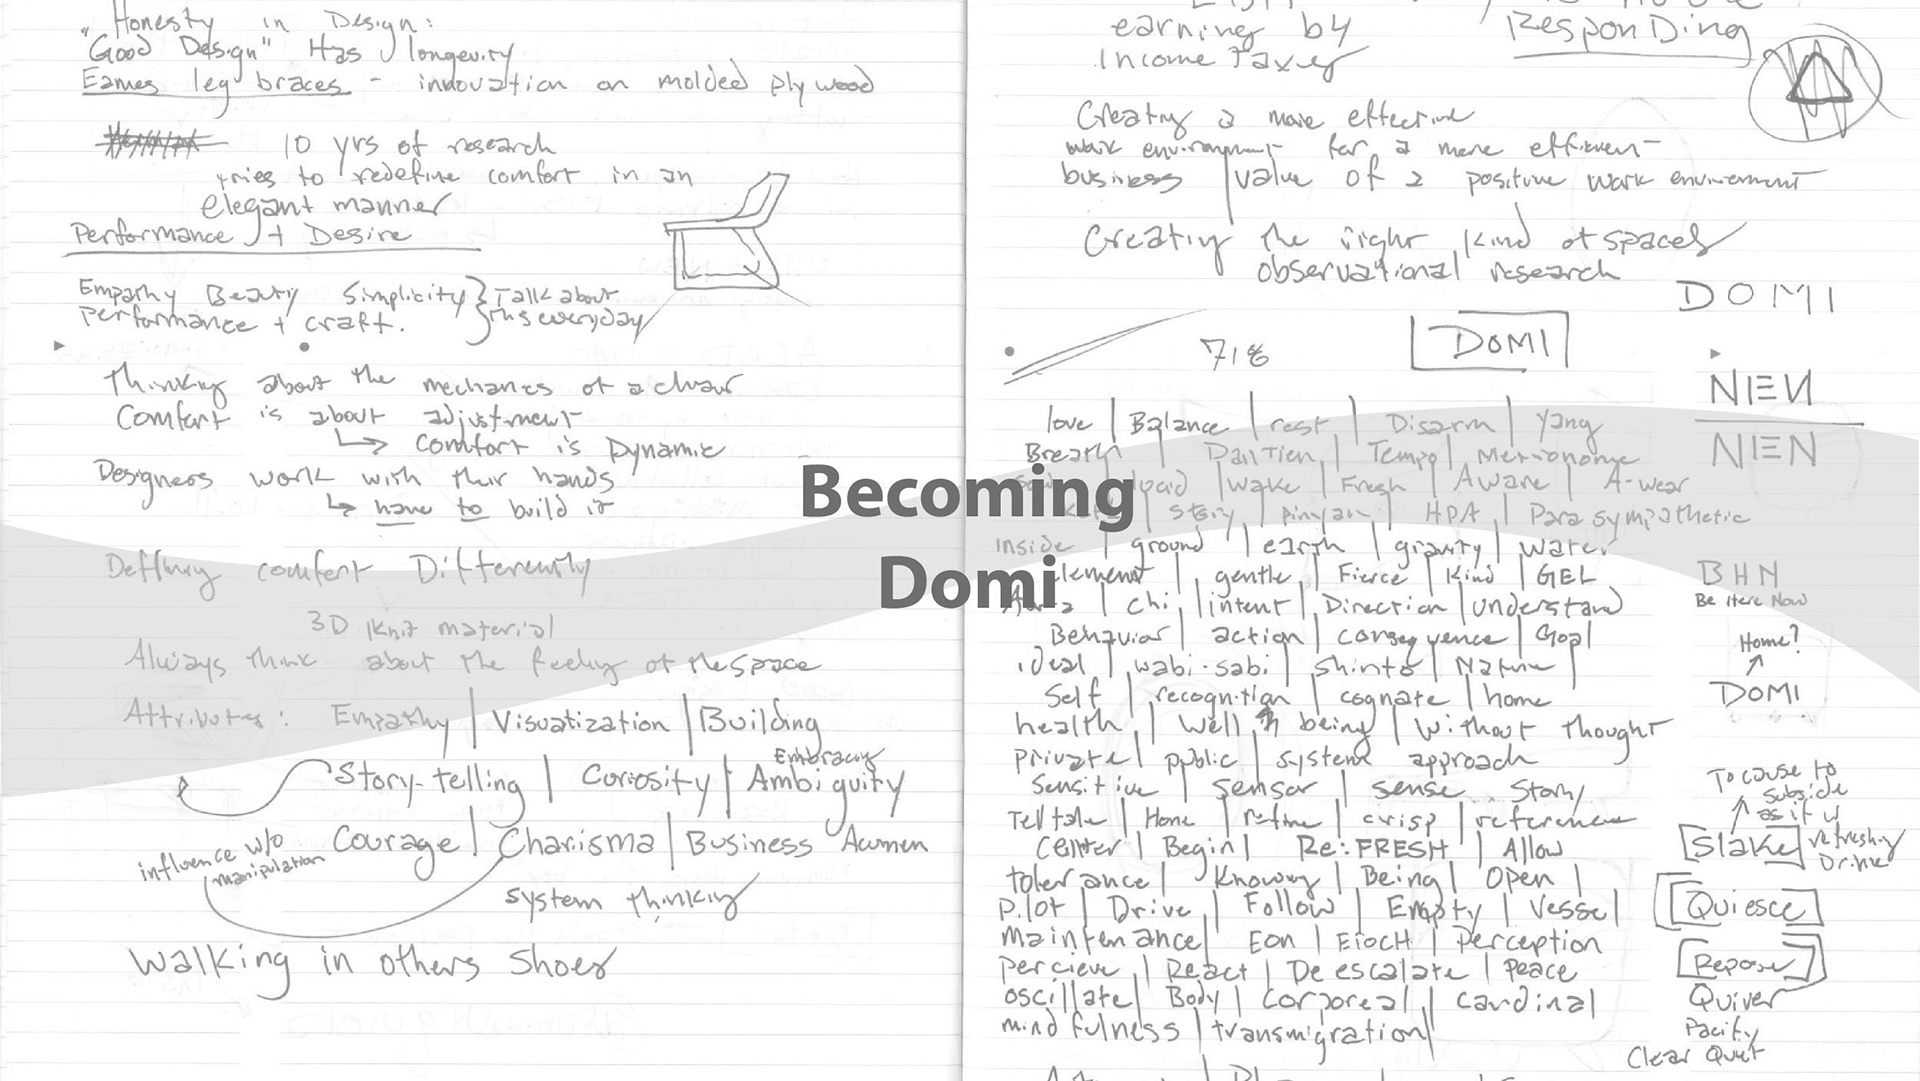 "Honesty in Design:
"Good Design" Has longevity
Eames leg braces - innovation on molded plywood
10 yrs of research
tries to redefine comfort in an
elegant manner
Performance + Desire
Empathy Beauty Simplicity } Talk about
Performance + craft. } this everyday
Thinking about the mechanics of a chair
Comfort is about adjustment
↳ Comfort is Dynamic
Designers work with their hands
↳ have to build it
Defining comfort Differently
3D knit material
Always think about the feeling of the space
Attributes: Empathy | Visuatization | Building
Embracing
Story-telling | Curiosity | Ambiguity
influence w/o manipulation
Courage | Charisma | Business Acumen
system thinking
Walking in others shoes
Becoming
Domi
earning by
Income Taxes
Responding
Creating a more effective
work environment for a more efficient
business | value of a positive work environment
Creating the right kind of spaces
observational research
DOMI
718
DOMI
NIEN
NIEN
love | Balance | rest | Disarm | Yang
Breath | Dan Tien | Tempo | Metronome
wake | Fresh | Aware | A-wear
story | pinyan | HPA | Para sympathetic
Inside | ground | earth | gravity | water
element | gentle | Fierce | Kind | GEL
chi | intent | Direction | understand
Behavior | action | consequence | Goal
ideal | wabi-sabi | shinto | Nature |
Self | recognition | cognate | home
health | Well being | Without thought
private | public | systems approach
Sensitive | sensor | sense Story
Tell tale | Home | refine | crisp | reference
Center | Begin | Re:FRESH | Allow
tolerance | Knowing | Being | Open |
Pilot | Drive | Follow | Empty | Vessel
maintenance | Eon | EIOCH | Perception
percieve | React | De escalate | Peace
oscillate | Body | corporeal | cardinal
mindfulness | transmigration |
BHN
Be Here Now
Home?
DOMI
To cause to
subside
as if w
Slake refreshing
Drink
Quiesce
Repose
Quiver
Pacify
Clear Quiet